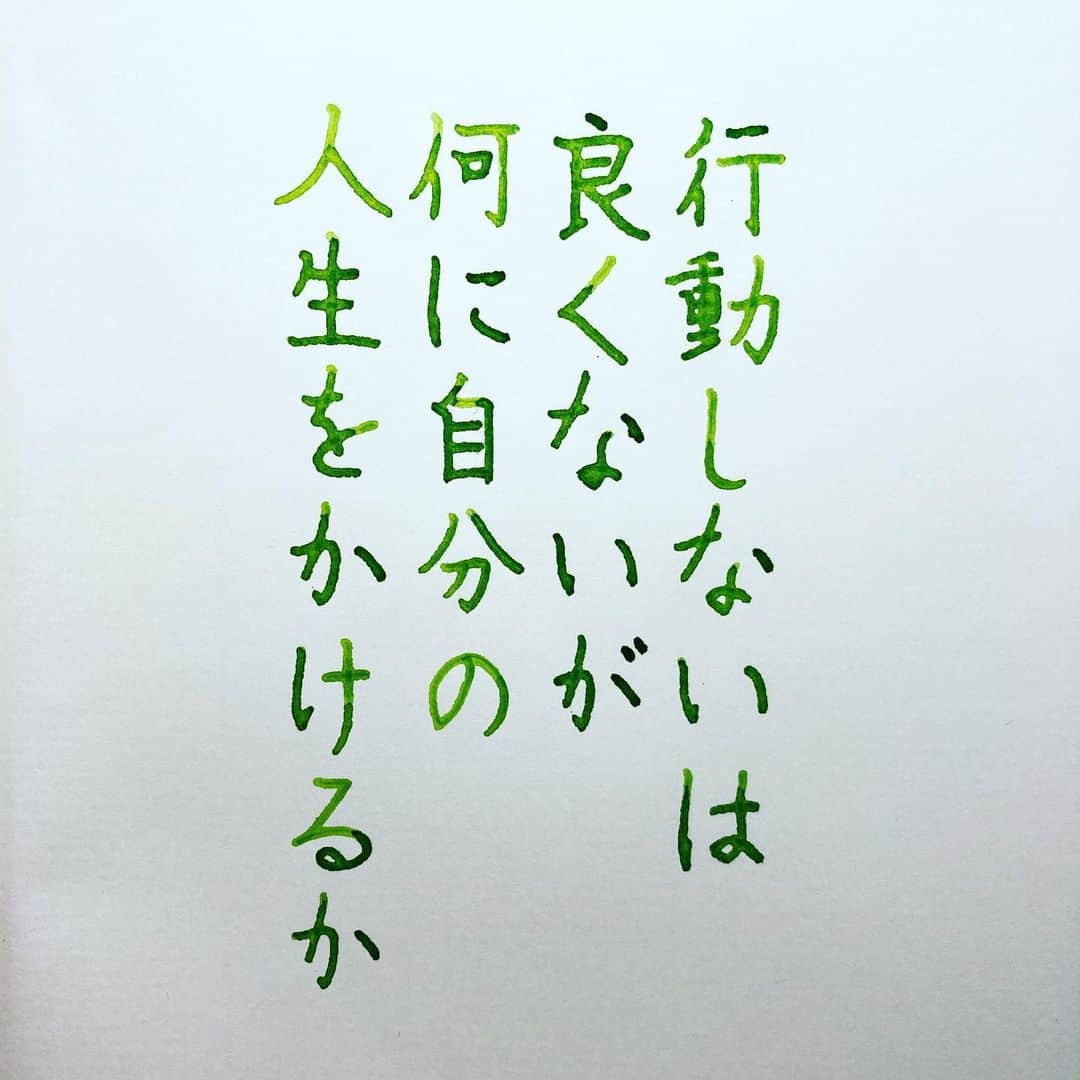 行動しないは
良くないが
何に自分の
人生をかけるか